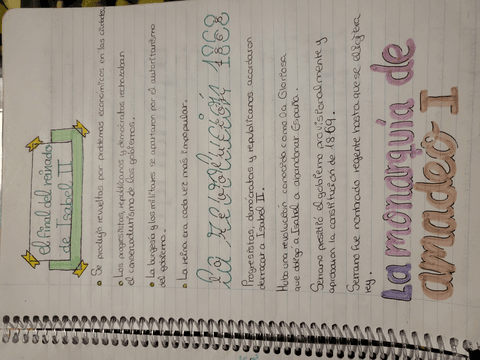 el final del reinado
de Isabel II
Se produjo revueltas por problemas económicos en las ciudades.
Los progresistas, republicanos y demócratas rechazaban
el conservadurismo de los gobiernos.
La burgesía y los militares se apartaron por el autoritarismo
del gobierno.
La reina era cada vez más impopular.
la revolución 1868
Progresistas, demócratas y republicanos acordaron
derrocar a Isabel II.
Hubo una revolución conocida como la Gloriosa
que obligó a Isabel a abandonar España.
Serrano presidió el gobierno provisionalmente y
aprobaron la constitución de 1869.
Serrano fue nombrado regente hasta que se eligiera
rey.
La monarquía de
amadeo I